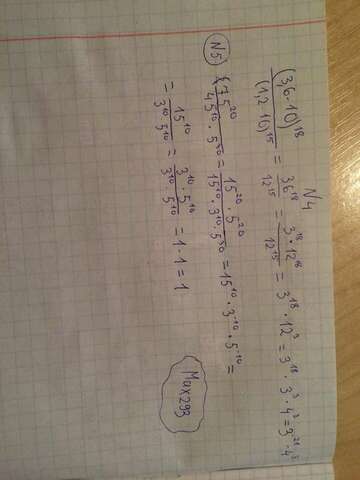 N4
(3,6·10)¹⁸ / (1,2·10)¹⁵ = 36¹⁸ / 12¹⁵ = 3¹⁸·12¹⁸ / 12¹⁵ = 3¹⁸·12³ = 3¹⁸·3³·4³ = 3²¹·4³
N5
75²⁰ / 45¹⁰·5³⁰ = 15²⁰·5²⁰ / 15¹⁰·3¹⁰·5³⁰ = 15¹⁰·3⁻¹⁰·5⁻¹⁰ =
= 15¹⁰ / 3¹⁰·5¹⁰ = 3¹⁰·5¹⁰ / 3¹⁰·5¹⁰ = 1·1 = 1
Max293